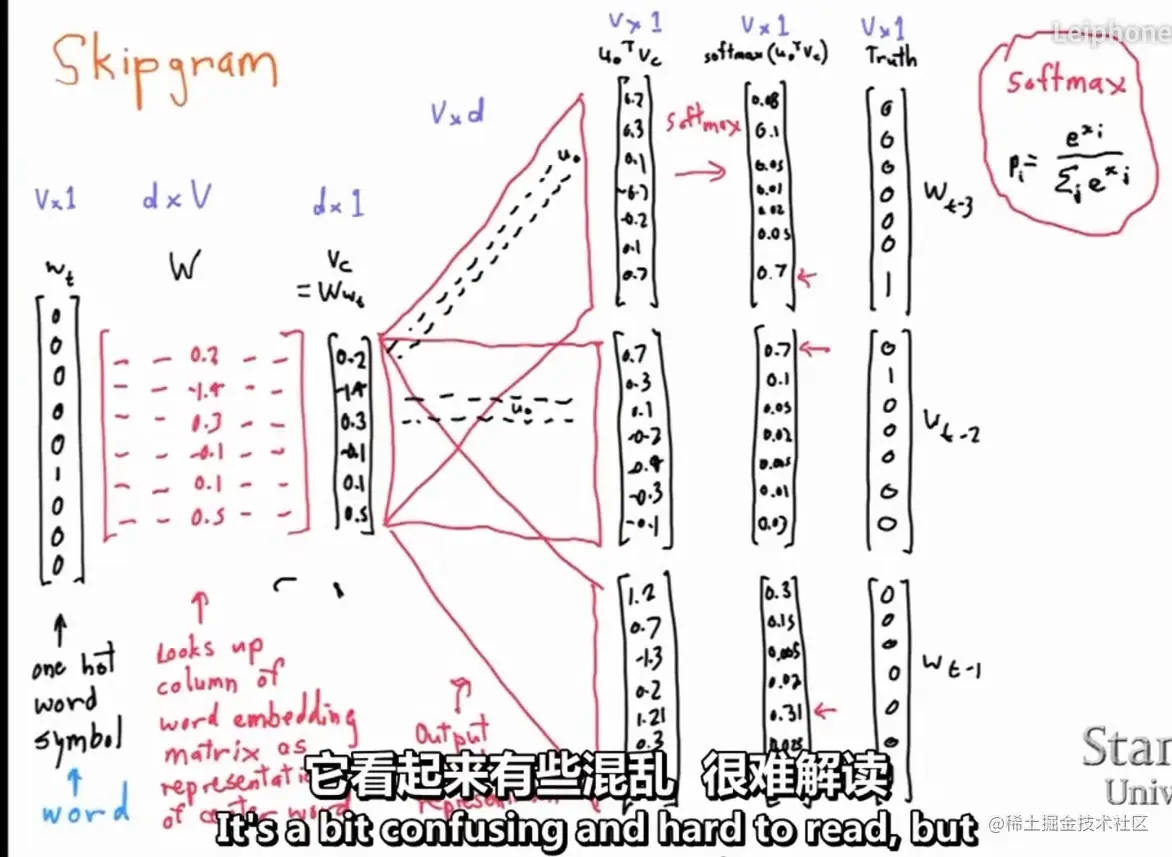 Skipgram
Leiphone
V×1
d×V
d×1
V×d
V×1
V×1
V×1
w_t
W
v_c
= Ww_t
u_o^T v_c
softmax(u_o^T v_c)
Truth
softmax
p_i = e^{x_i} / Σ_j e^{x_j}
softmax
u_o
u_o
0
0
0
0
0
1
0
0
0
- - 0.2 - -
- - -1.4 - -
- - 0.3 - -
- - -0.1 - -
- - 0.1 - -
- - 0.5 - -
0.2
-1.4
0.3
-0.1
0.1
0.5
0.3
0.1
-0.2
0.1
0.7
0.1
0.05
0.01
0.02
0.05
0.7
0
0
0
0
0
1
w_t-3
0.7
0.3
0.1
-0.2
-0.3
-0.1
0.7
0.1
0.05
0.02
0.01
0.03
0
1
0
0
0
0
0
w_t-2
1.2
0.7
-1.3
0.2
1.21
0.3
0.3
0.15
0.005
0.02
0.31
0
0
0
0
0
0
w_t-1
one hot
word
symbol
word
Looks up
column of
word embedding
matrix as
of word
Output
它看起来有些混乱 很难解读
It's a bit confusing and hard to read, but
Star
Univ
@稀土掘金技术社区